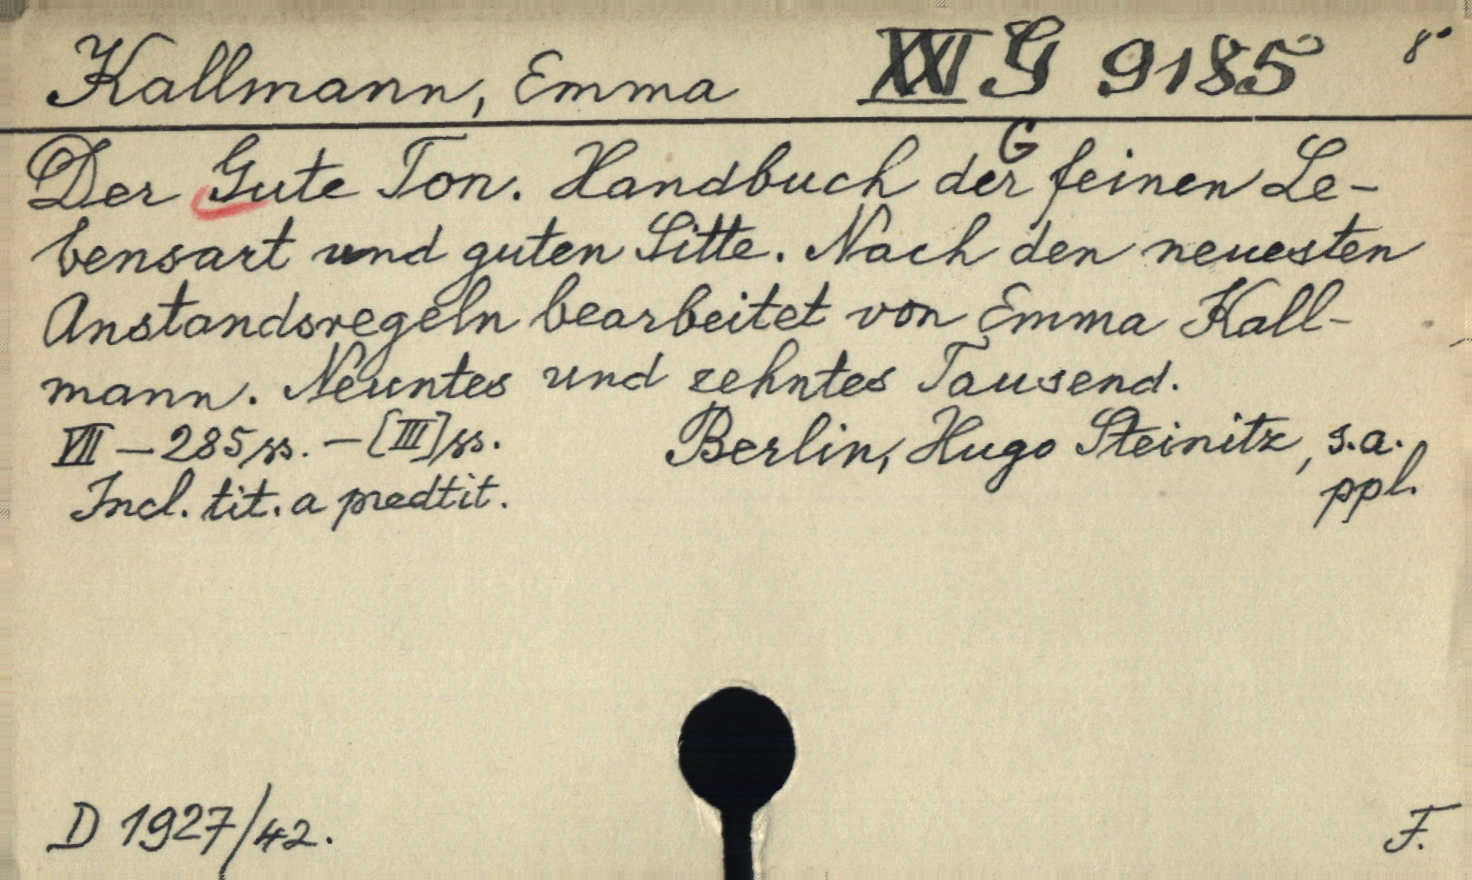 Kallmann, Emma XXI G 9185 8°
G
Der Gute Ton. Handbuch der feinen Le-
bensart und guten Sitte. Nach den neuesten
Anstandsregeln bearbeitet von Emma Kall-
mann. Neuntes und zehntes Tausend.
VII - 285 ss. - [III] ss. Berlin, Hugo Steinitz, s.a.
Incl. tit. a predtit. ppl.
D 1927/42. F.